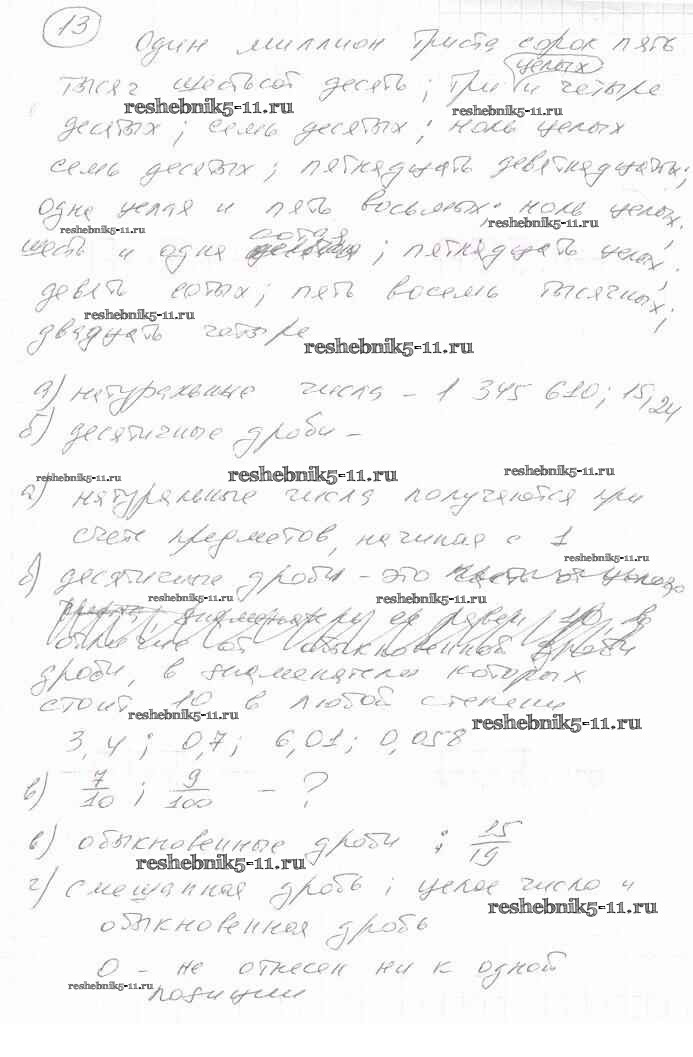 13
Один миллион триста сорок пять
целых
тысяч шестьсот десять; три и четыре
reshebnik5-11.ru reshebnik5-11.ru
десятых; семь десятых; ноль целых
семь десятых; пятнадцать девятнадцатых;
одна целая и пять восьмых; ноль целых;
reshebnik5-11.ru reshebnik5-11.ru
сотая
шесть и одна; пятнадцать целых;
девять сотых; пять восемь тысячных;
reshebnik5-11.ru
двадцать четыре
reshebnik5-11.ru
а) натуральные числа – 1 345 610; 15, 24
б) десятичные дроби –
reshebnik5-11.ru reshebnik5-11.ru reshebnik5-11.ru
а) натуральные числа получаются при
счете предметов, начиная с 1
reshebnik5-11.ru
б) десятичные дроби – это
reshebnik5-11.ru reshebnik5-11.ru
знаменатель ее равен 10, в
отличие от обыкновенной дроби
дроби, в знаменателях которых
стоит 10 в любой степени
reshebnik5-11.ru reshebnik5-11.ru
3,4; 0,7; 6,01; 0,058
в) 7/10; 9/100 – ?
в) обыкновенные дроби: 15/19
reshebnik5-11.ru
г) смешанная дробь; целое число и
reshebnik5-11.ru
обыкновенная дробь
0 – не отнесен ни к одной
reshebnik5-11.ru
позиции